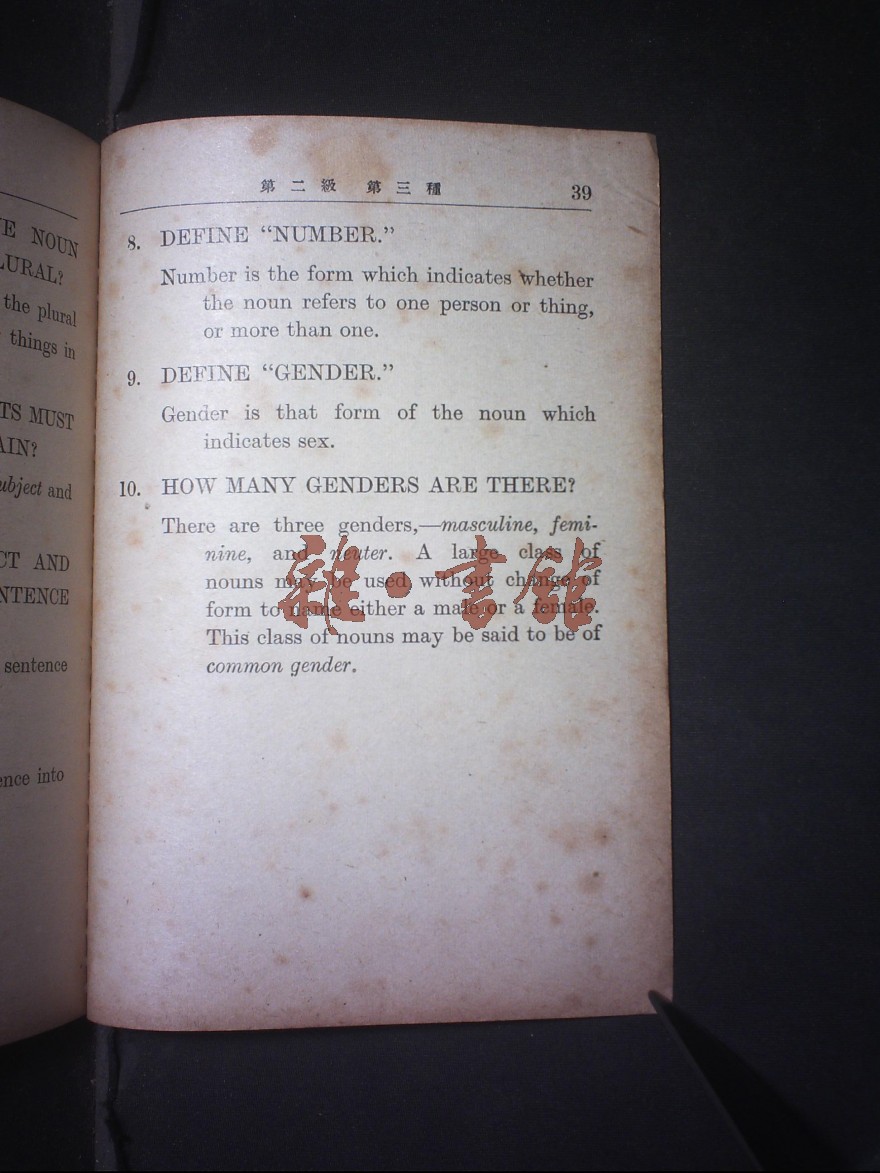 E NOUN
LURAL?
the plural
things in
TS MUST
AIN?
ubject and
CT AND
NTENCE
sentence
ence into
第二級 第三種 39
8. DEFINE “NUMBER.”
Number is the form which indicates whether
the noun refers to one person or thing,
or more than one.
9. DEFINE “GENDER.”
Gender is that form of the noun which
indicates sex.
10. HOW MANY GENDERS ARE THERE?
There are three genders,—masculine, femi-
nine, and neuter. A large class of
nouns may be used without change of
form to name either a male or a female.
This class of nouns may be said to be of
common gender.
雜·書館